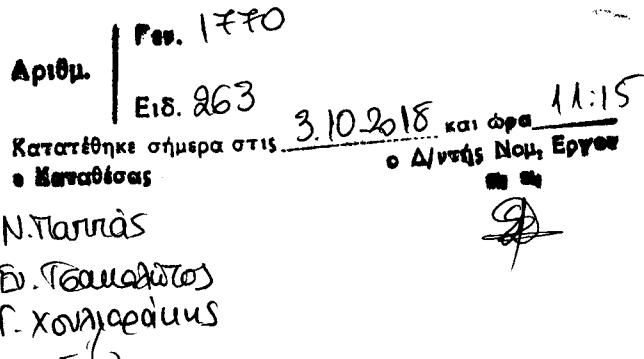 Αριθμ.
Γεν. 1770
Ειδ. 263
Κατατέθηκε σήμερα στις 3.10.2018 και ώρα 11:15
ο Καταθέσας
ο Δ/ντής Νομ. Εργου
Ν. Παππάς
Ευ. Τσακαλώτος
Γ. Χουλιαράκης